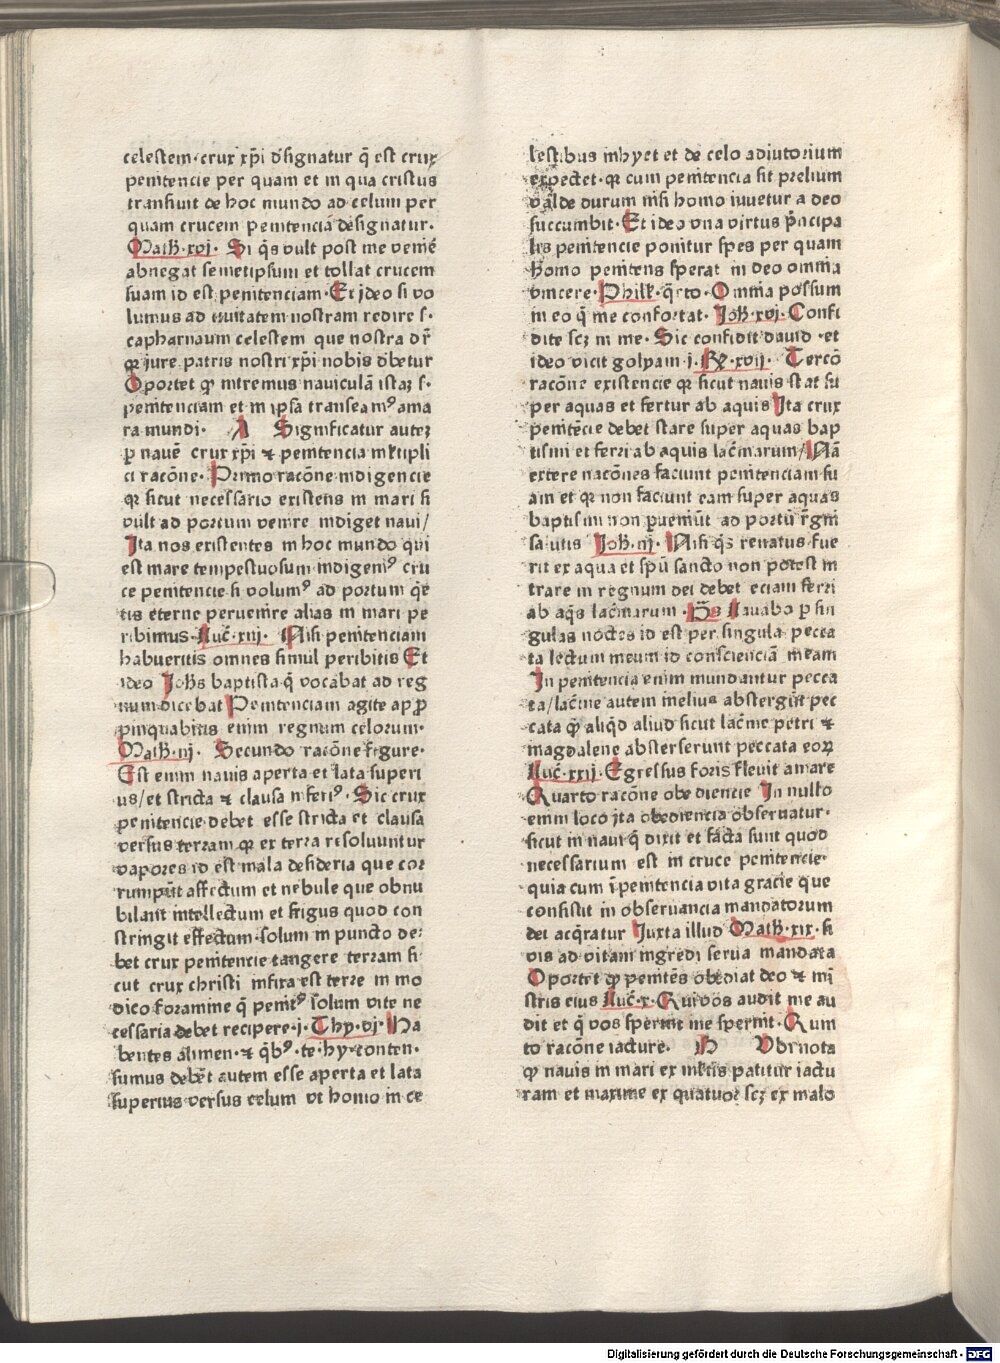 celestem·crux xp̄i d̄signatur q̄ est crux
penitencie per quam et in qua cristus
transiuit de hoc mundo ad celum per
quam crucem penitenciā designatur·
Math·xvj· Si q̄s vult post me venīe
abnegat semetipsum et tollat crucem
suam id est penitenciam·Et ideo si vo
lumus ad ciuitatem nostram redire s·
capharnaum celestem que nostra dr̄
qꝛ jure patris nostri xp̄i nobis d̄betur
Oportet qͥ intremus nauiculā istaꝫ s·
penitenciam et in ipsa transeamꝰ ama
ra mundi· A Significatur auteꝫ
p nauē crux xp̄i ⁊ penitencia mltipli
ci racōne· Primo racōne indigencie
qꝛ sicut necessario existens in mari si
vult ad portum venire indiget naui/
Ita nos existentes in hoc mundo qui
est mare tempestuosum indigemꝰ cru
ce penitencie si volumꝰ ad portum q̄e
tis eterne peruenire alias in mari pe
ribimus·Luc̄·xiij· Nisi penitenciam
habueritis omnes simul peribitis Et
ideo Johs baptista q̄ vocabat ad reg
num dicebat Penitenciam agite ap̄p
pinquabitis enim regnum celorum·
Math·iij· Secundo racōne figure·
Est enim nauis aperta et lata superi
us/et stricta ⁊ clausa inferiꝰ· Sic crux
penitencie debet esse stricta et clausa
versus terram qꝛ ex terra resoluuntur
vapores id est mala desideria que cor
rumpūt affectum et nebule que obnu
bilant intellectum et frigus quod con
stringit effectum·solum in puncto de⸗
bet crux penitencie tangere terram si
cut crux christi infixa est terre in mo
dico foramine q̄ penitꝰ solum vite ne
cessaria debet recipere·j·Thy·vj·Ha
bentes alimen·⁊ q̄bꝰ·te·hy·conten·
sumus debēt autem esse aperta et lata
superius versus celum vt homo in ce
lestibus inhyet et de celo adiutorium
expectet·qꝛ cum penitencia sit prelium
valde durum nisi homo iuuetur a deo
succumbit·Et ideo vna virtus p̄ncipa
lis penitencie ponitur spes per quam
homo penitens sperat in deo omnia
vincere·Philk·q̄rto·Omnia possum
in eo q̄ me confortat· Joh·xvj·Confi
dite scꝫ in me· Sic confidit dauid ·et
ideo vicit golyam·j·R̄·xvij· Tercō
racōne existencie qꝛ sicut nauis stat su
per aquas et fertur ab aquis Ita crux
penitēcie debet stare super aquas bap
tismi et ferri ab aquis lac̄marum/Nā
extere nacōnes faciunt penitenciam su
am et qꝛ non faciunt eam super aquas
baptismi non pueniūt ad portū r̄gni
salutis Joh·iij· Nisi q̄s renatus fue
rit ex aqua et spū sancto non potest in
trare in regnum dei debet eciam ferri
ab aq̄s lac̄marum·P̄s Lauabo p sin
gulas noctes id est per singula pecca
ta lectum meum id conscienciā meam
In penitencia enim mundantur pecca
ta/lac̄me autem melius abstergūt pec
cata qͣ aliq̄d aliud sicut lac̄me petri ⁊
magdalene absterserunt peccata eoꝝ
Luc̄·xxij·Egressus foris fleuit amare
Quarto racōne obediencie In nullo
enim loco jta obediencia obseruatur·
sicut in naui q̄ dixit et facta sunt quod
necessarium est in cruce penitencie·
quia cum ī penitencia vita gracie que
consistit in obseruancia mandatorum
dei acq̄ratur Juxta illud Math·xix·si
vis ad vitam ingredi serua mandata
Oportet qͥ penitēs obediat deo ⁊ mi
stris eius Luc̄·x·Qui vos audit me au
dit et q̄ vos spernit me spernit·Quin
to racōne iacture· H Vbi nota
qͥ nauis in mari ex mltis patitur iactu
ram et maxime ex quatuor scꝫ ex malo
Digitalisierung gefördert durch die Deutsche Forschungsgemeinschaft - DFG